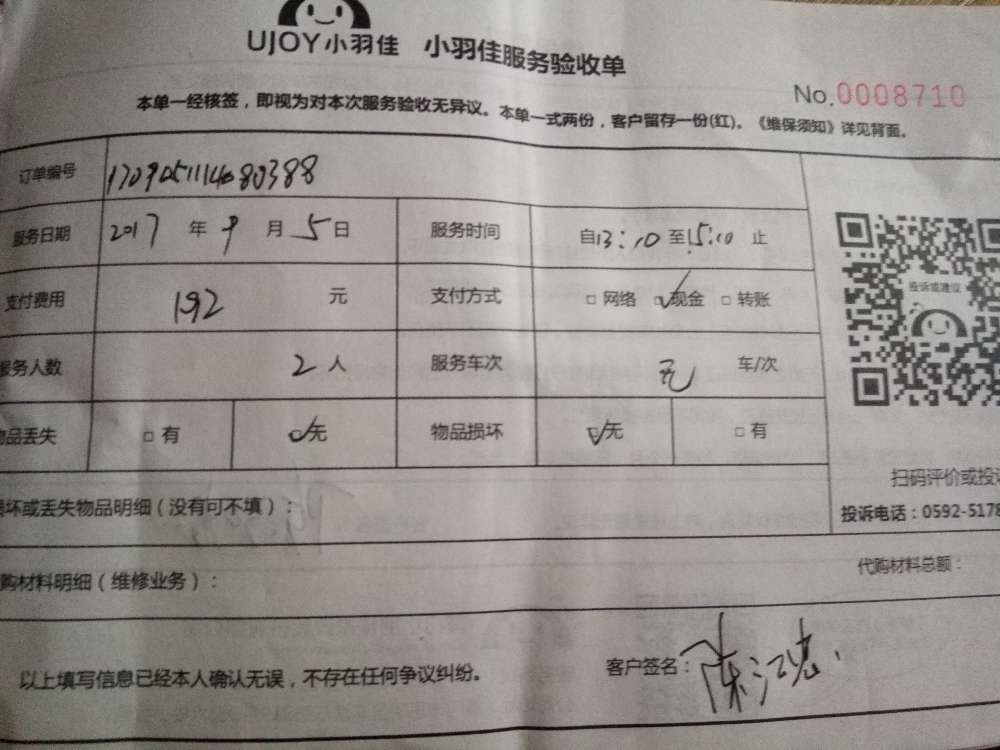 UJOY小羽佳 小羽佳服务验收单
No.0008710
本单一经核签，即视为对本次服务验收无异议。本单一式两份，客户留存一份(红)。《维保须知》详见背面。
订单编号
服务日期 2017 年 9 月 5 日 服务时间 自13:10 至15:10 止
支付费用 192 元 支付方式 □ 网络 ☑现金 □ 转账
服务人数 2 人 服务车次 无 车/次
物品丢失 □ 有 ☑无 物品损坏 ☑无 □ 有
投诉或建议
扫码评价或投诉
损坏或丢失物品明细（没有可不填）：
投诉电话：0592-5178
代购材料明细（维修业务）： 代购材料总额：
以上填写信息已经本人确认无误，不存在任何争议纠纷。 客户签名：